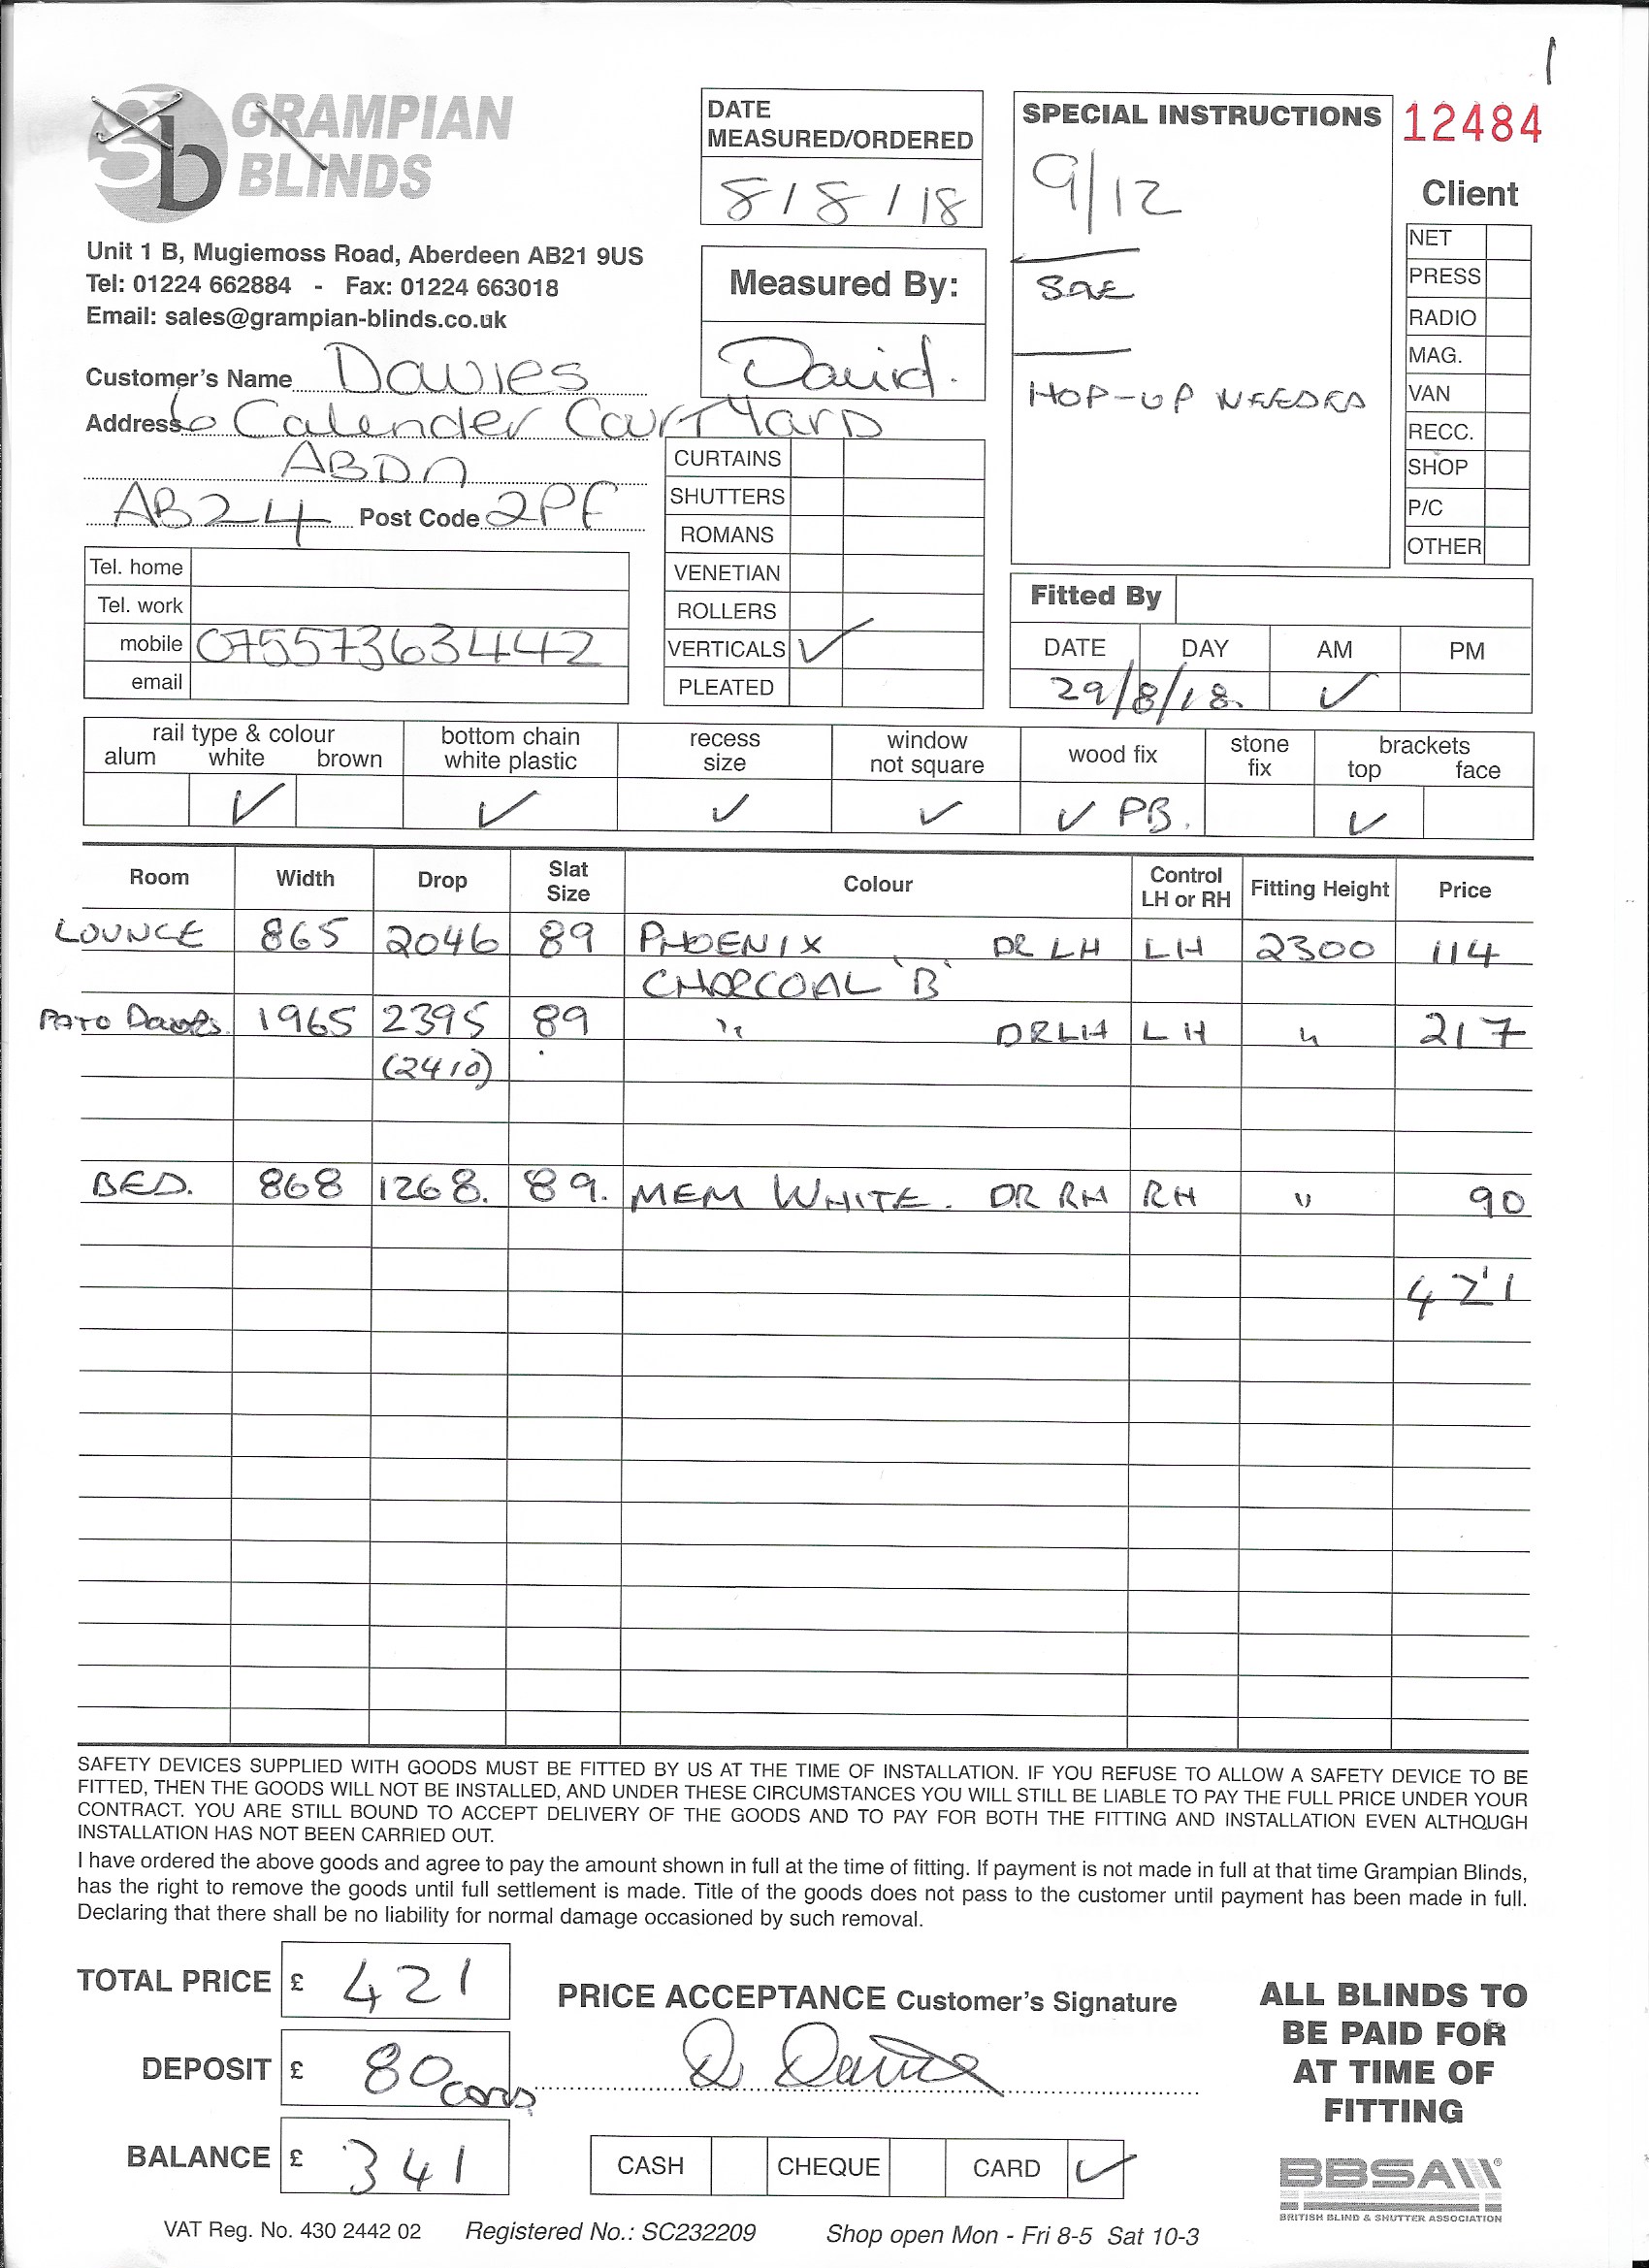 1
GRAMPIAN
BLINDS
Unit 1 B, Mugiemoss Road, Aberdeen AB21 9US
Tel: 01224 662884 - Fax: 01224 663018
Email: sales@grampian-blinds.co.uk
DATE
MEASURED/ORDERED
8/8/18
Measured By:
David.
SPECIAL INSTRUCTIONS
9/12
SAE
HOP-UP NEEDED
12484
Client
NET
PRESS
RADIO
MAG.
VAN
RECC.
SHOP
P/C
OTHER
Customer's Name Davies
Address 6 Calender CourtYard
ABDN
AB24 Post Code 2PF
Tel. home
Tel. work
mobile 07557363442
email
CURTAINS
SHUTTERS
ROMANS
VENETIAN
ROLLERS
VERTICALS ✓
PLEATED
Fitted By
DATE DAY AM PM
29/8/18. ✓
rail type & colour bottom chain recess window wood fix stone brackets
alum white brown white plastic size not square fix top face
✓ ✓ ✓ ✓ ✓ PB. ✓
Room Width Drop Slat Size Colour Control LH or RH Fitting Height Price
LOUNGE 865 2046 89 PHOENIX DR LH LH 2300 114
CHARCOAL 'B'
PATO Doors. 1965 2395 89 " DR LH LH " 217
(2410)
BED. 868 1268. 89. MEM WHITE. DR RH RH " 90
421
SAFETY DEVICES SUPPLIED WITH GOODS MUST BE FITTED BY US AT THE TIME OF INSTALLATION. IF YOU REFUSE TO ALLOW A SAFETY DEVICE TO BE
FITTED, THEN THE GOODS WILL NOT BE INSTALLED, AND UNDER THESE CIRCUMSTANCES YOU WILL STILL BE LIABLE TO PAY THE FULL PRICE UNDER YOUR
CONTRACT. YOU ARE STILL BOUND TO ACCEPT DELIVERY OF THE GOODS AND TO PAY FOR BOTH THE FITTING AND INSTALLATION EVEN ALTHOUGH
INSTALLATION HAS NOT BEEN CARRIED OUT.
I have ordered the above goods and agree to pay the amount shown in full at the time of fitting. If payment is not made in full at that time Grampian Blinds,
has the right to remove the goods until full settlement is made. Title of the goods does not pass to the customer until payment has been made in full.
Declaring that there shall be no liability for normal damage occasioned by such removal.
TOTAL PRICE £ 421
DEPOSIT £ 80 CARD
BALANCE £ 341
PRICE ACCEPTANCE Customer's Signature
D Davies
CASH CHEQUE CARD ✓
ALL BLINDS TO
BE PAID FOR
AT TIME OF
FITTING
BBSA
BRITISH BLIND & SHUTTER ASSOCIATION
VAT Reg. No. 430 2442 02 Registered No.: SC232209 Shop open Mon - Fri 8-5 Sat 10-3